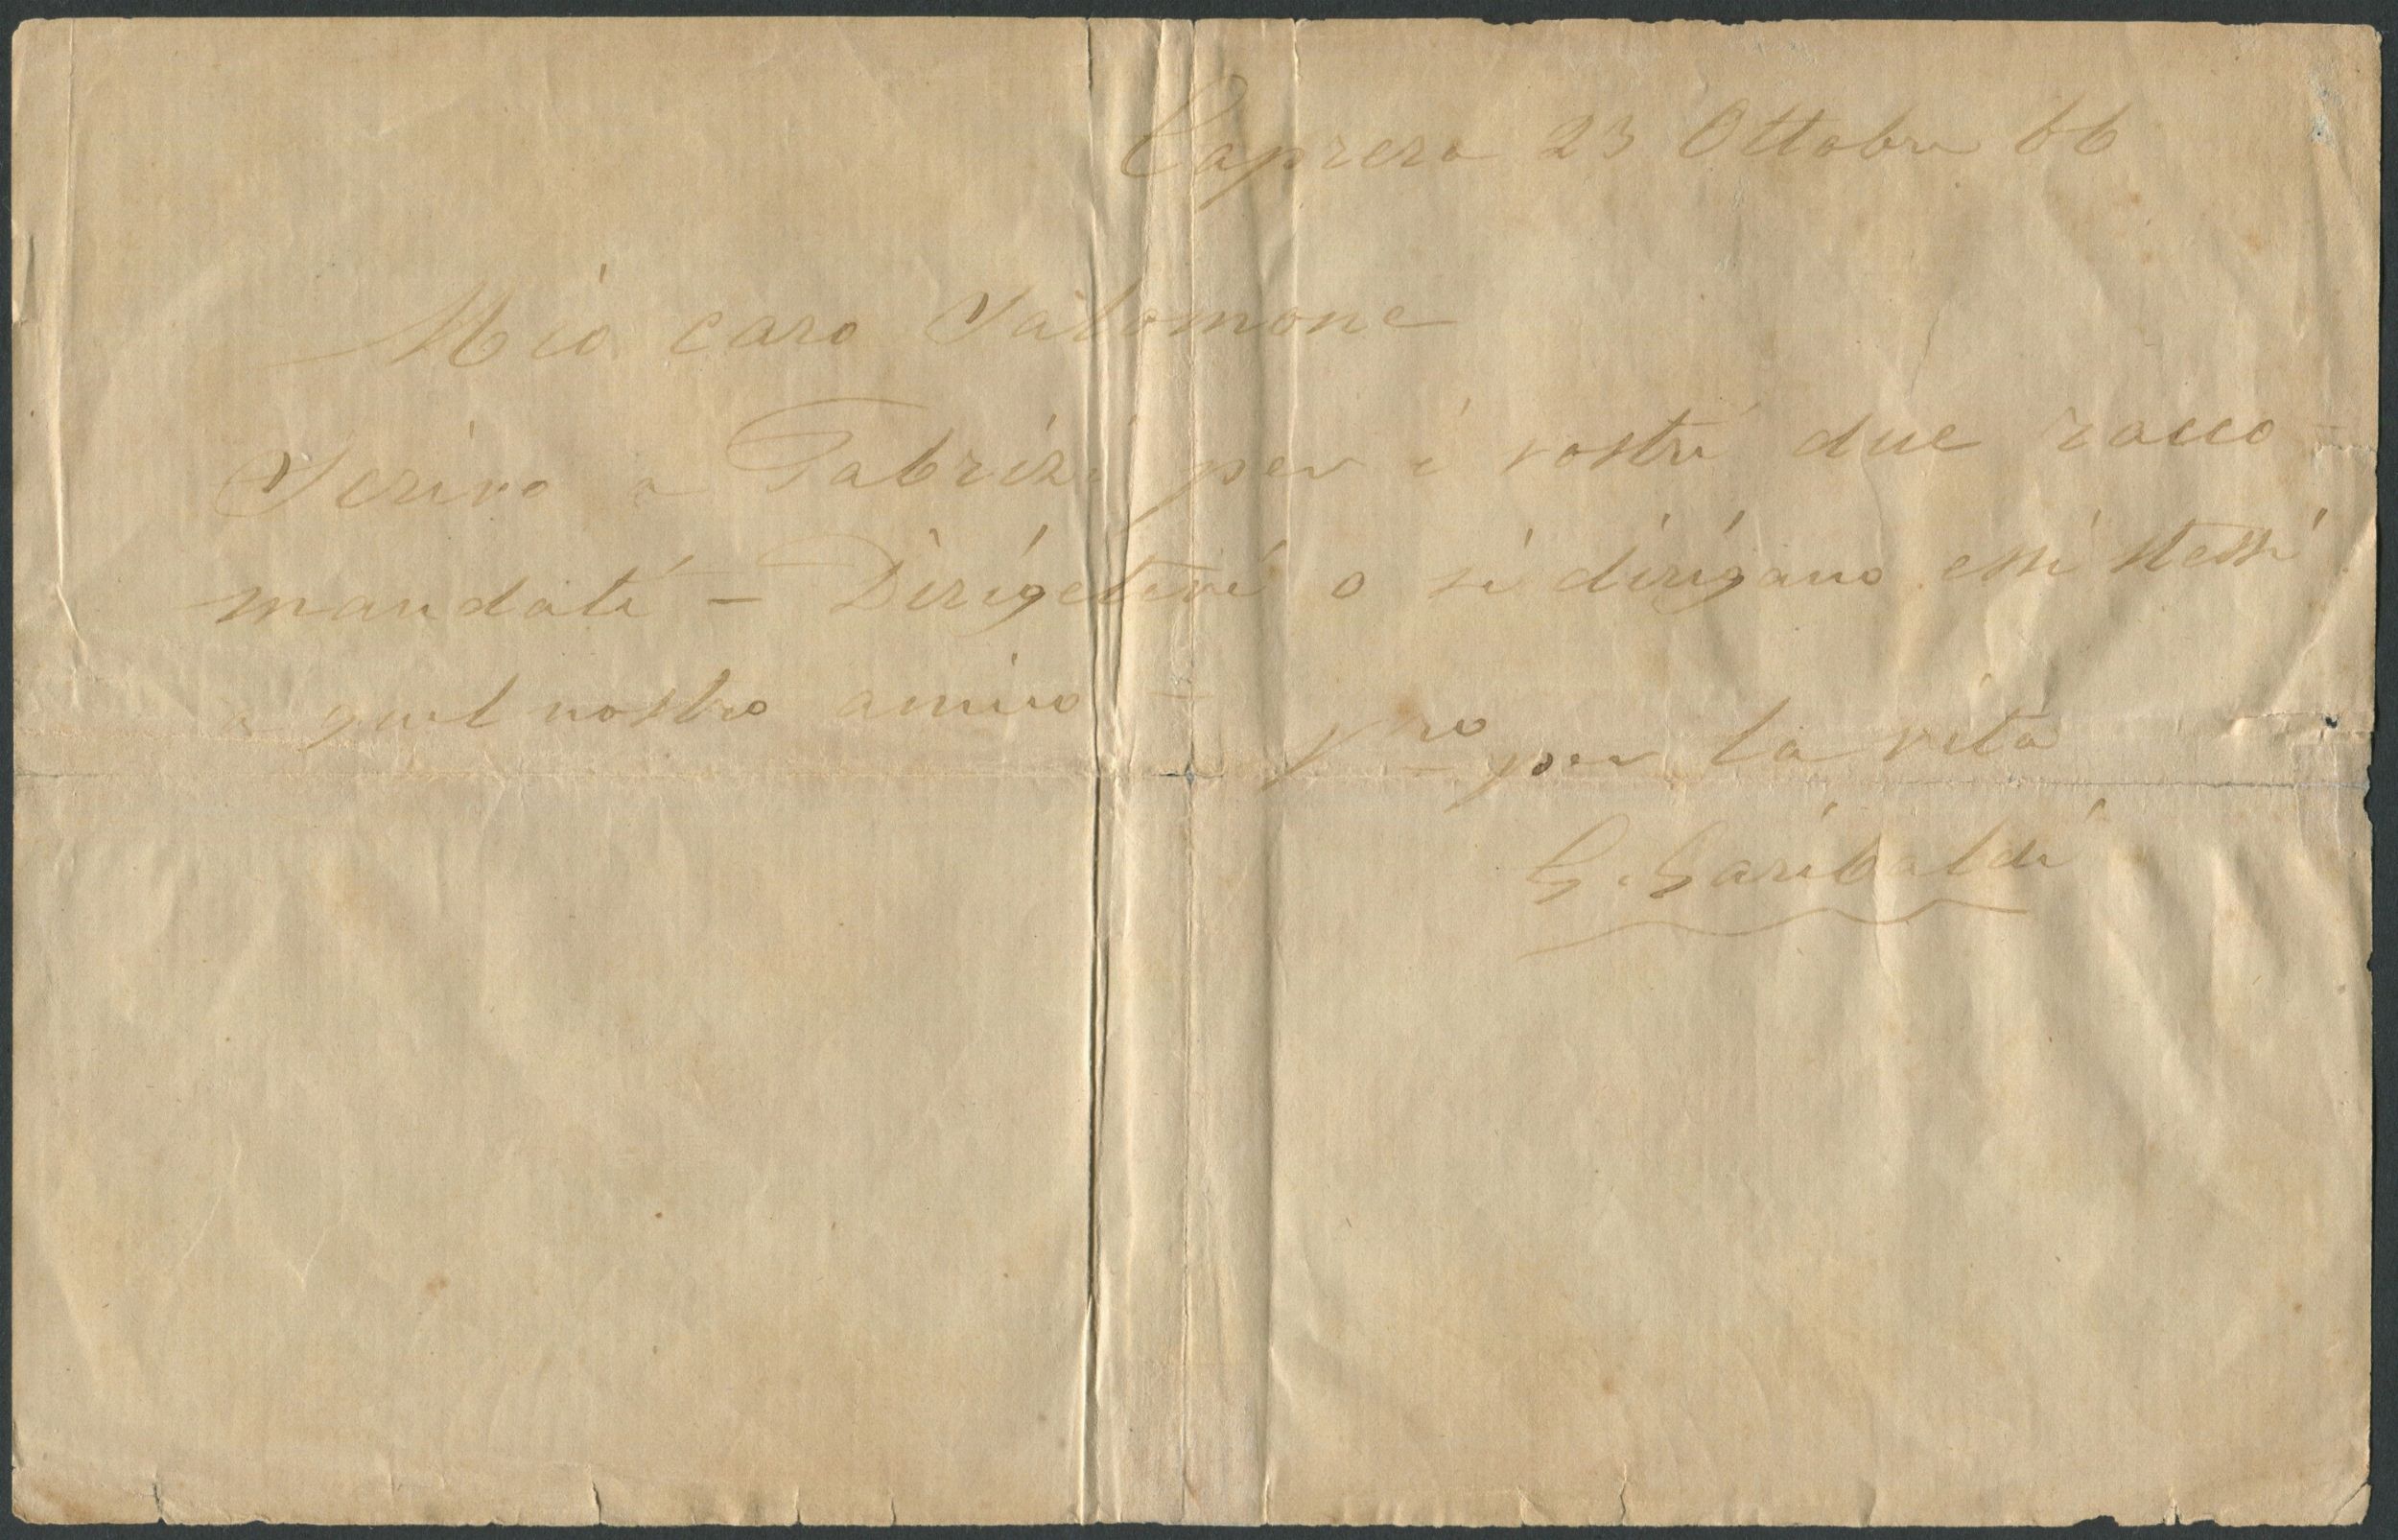 Caprera 23 Ottobre 66
Mio caro Salomone
Scrivo a Fabrizi per i vostri due racco-
mandati - Dirigetevi o si dirigano essi stessi
a quel nostro amico -
Vro per la vita
G. Garibaldi